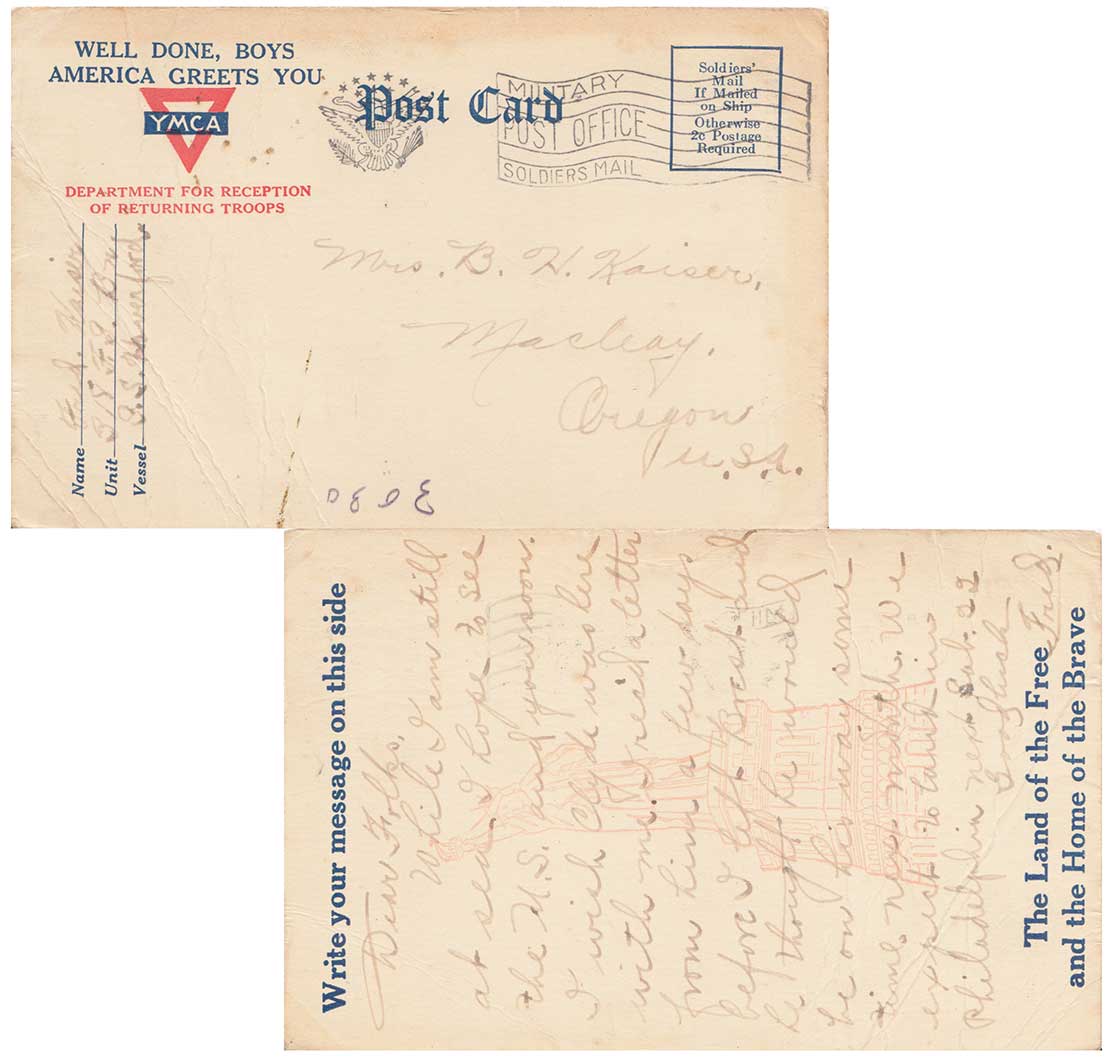 WELL DONE, BOYS
AMERICA GREETS YOU
YMCA
DEPARTMENT FOR RECEPTION
OF RETURNING TROOPS
Post Card
MILITARY
POST OFFICE
SOLDIERS MAIL
Soldiers'
Mail
If Mailed
on Ship
Otherwise
2c Postage
Required
Name
Unit 318 F.S. Bn.
Vessel S.S. Haverford
Mrs. B. H. Kaiser,
Macleay,
Oregon
U.S.A.
Write your message on this side
Dear Folks,
While I am still
at sea I hope to see
the U.S. and you soon.
I wish Clyde was here
with me. I rec'd a letter
from him a few days
before I left Brest and
he thought he would
be on his way some
time next month. We
expect to land in
Philadelphia next Sat. 22
Fred.
The Land of the Free
and the Home of the Brave